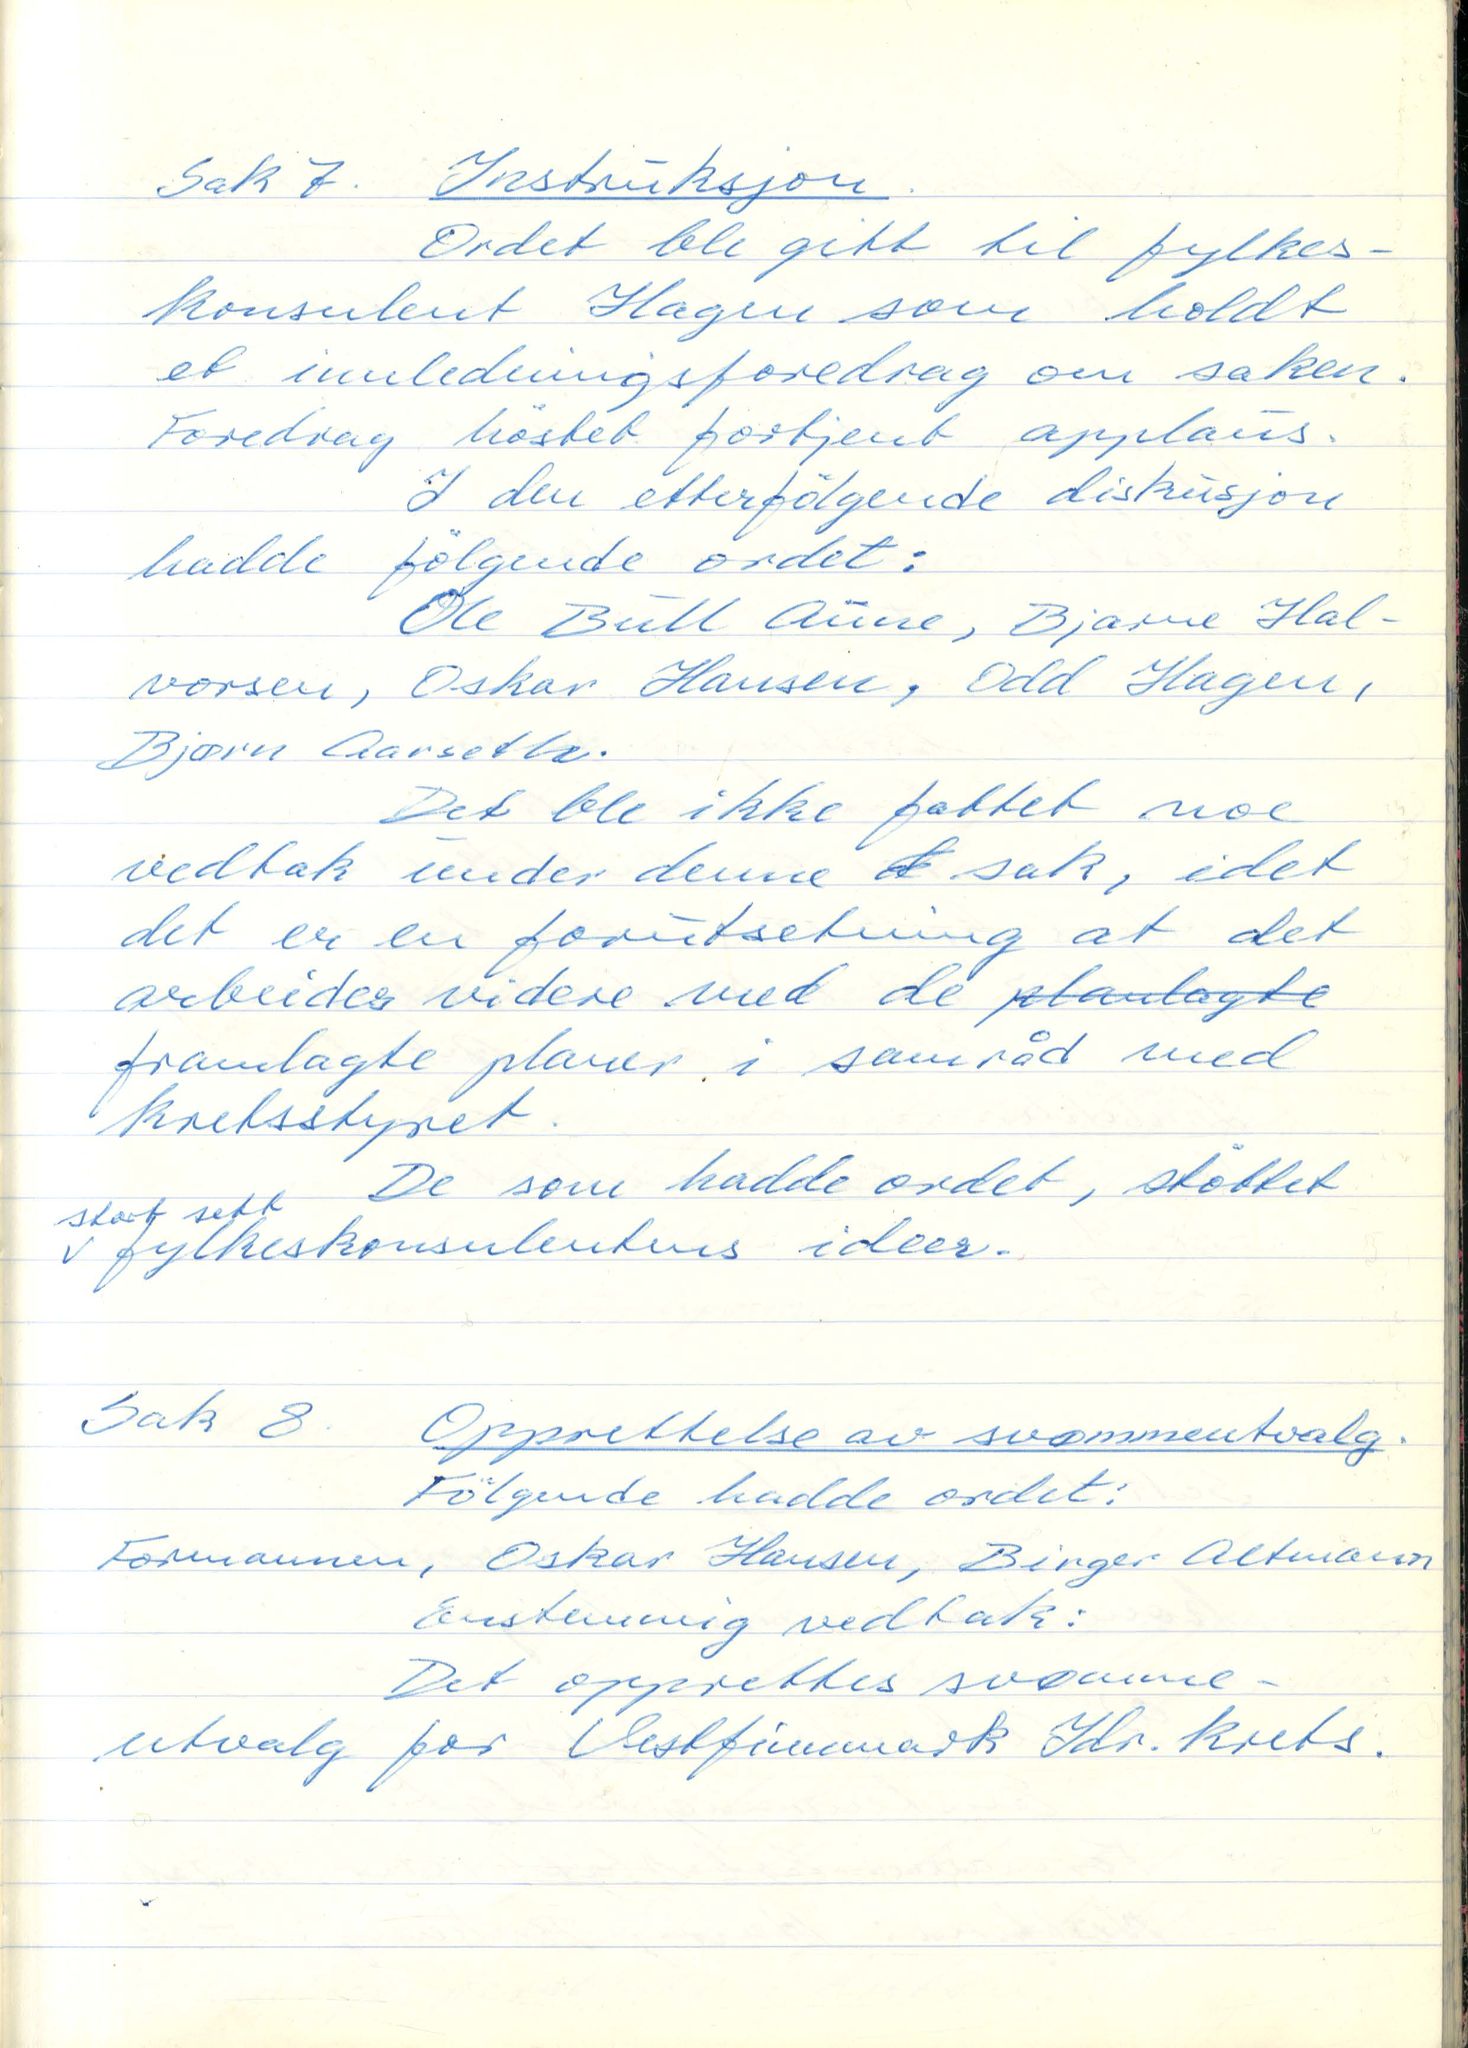 Sak 7. Instruksjon.
Ordet ble gitt til fylkes-
konsulent Hagen som holdt
et innledningsforedrag om saken.
Foredrag höstet fortjent applaus.
I den etterfölgende diskusjon
hadde fölgende ordet:
Ole Bull Aune, Bjarne Hal-
vorsen, Oskar Hansen, Odd Hagen,
Bjørn Aarseth.
Det ble ikke fattet noe
vedtak under denne sak, idet
det er en forutsetning at det
arbeides videre med de planlagte
framlagte planer i samråd med
kretsstyret.
De som hadde ordet, stöttet
stort sett
v fylkeskonsulentens ideer.
Sak 8. Opprettelse av svømmeutvalg.
Fölgende hadde ordet:
Formannen, Oskar Hansen, Birger Altmann
Enstemmig vedtak:
Det opprettes svømme-
utvalg for Vestfinnmark Idr. krets.